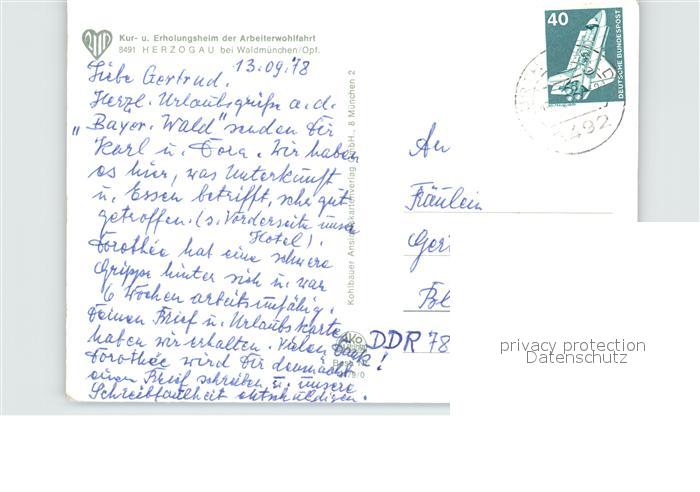 Kur- u. Erholungsheim der Arbeiterwohlfahrt
8491 HERZOGAU bei Waldmünchen/Opf.
13.09.78
Liebe Gertrud.
Herzl. Urlaubsgrüße a. d.
„Bayer. Wald" senden Dir
Karl u. Dora. Wir haben
es hier, was Unterkunft
u. Essen betrifft, sehr gut
getroffen. (s. Vorderseite unser
Hotel).
Dorothée hat eine schwere
Grippe hinter sich u. war
6 Wochen arbeitsunfähig.
Deinen Brief u. Urlaubskarte
haben wir erhalten. Vielen Dank!
Dorothée wird Dir demnächst
einen Brief schreiben u. unsere
Schreibfaulheit entschuldigen.
Kohlbauer Ansichtskartenverlag GmbH., 8 München 2
AKO
40
DEUTSCHE BUNDESPOST
8492
An
Fräulein
DDR 78
privacy protection
Datenschutz